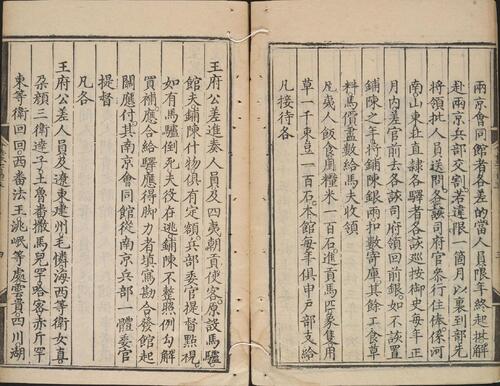 兩京會同館者各差的當人員限年終起批解
赴兩京兵部交割若違限一箇月以裏到部先
將領批人員送問各該司府官叅行住俸係河
南山東北直隷各驛者各該巡按御史每年正
月內差官前去各該司府領囘前銀如不該置
鋪陳之年將鋪陳銀兩扣數寄庫其餘工食草
料馬價盡數給與馬夫收領
凡夷人飯食用糧米一百石進貢馬匹象隻用
草一千束豆一百石本館每年俱申戶部支給
凡接待各
王府公差進奏人員及四夷朝貢使客原設馬驢
館夫鋪陳什物俱有定額兵部委官提督點視
如有馬驢倒死夫役在逃鋪陳不整照例勾解
買補應合給驛應得脚力者填寫勘合發館起
關應付其南京會同館從南京兵部一體委官
提督
凡各
王府公差人員及遼東建州毛憐海西等衛女直
朶顏三衛達子土魯番撒馬兒罕哈密赤斤罕
東等衛囬囬西番法王洮岷等處雲貴四川湖